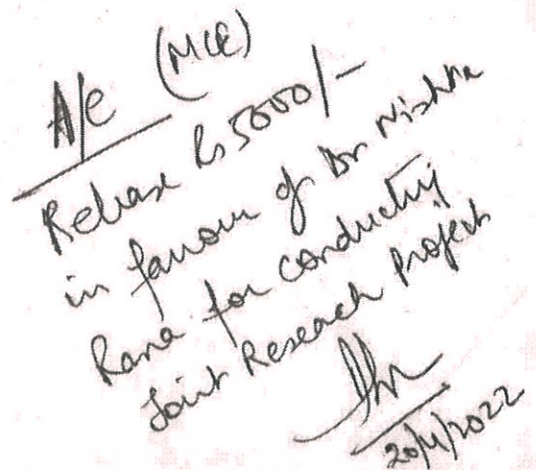 A/C (MCE)
Release Rs 5000/-
in favour of Dr Nishtha
Rana for conducting
Joint Reseach Project
20/4/2022